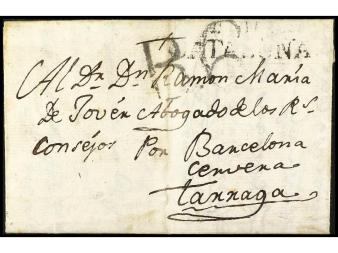 CATALUÑA
Al Dr. Dn. Ramon Maria
De Jovén Abogado de los Rs.
Consejos Por Barcelona
cervera
Tarraga